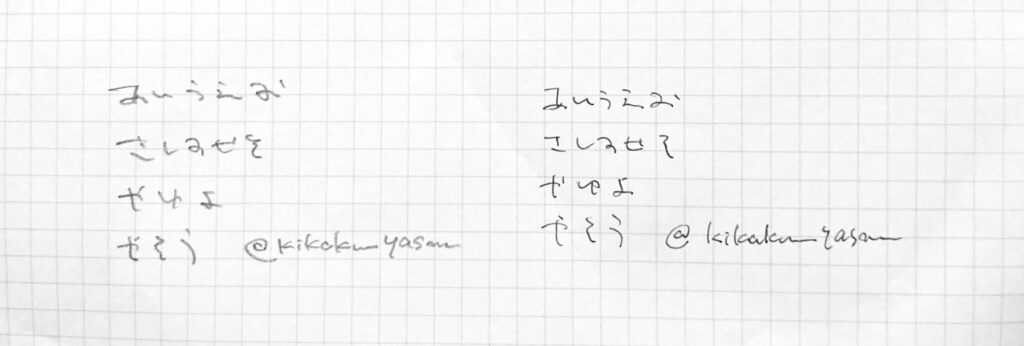 あいうえお
さしすせそ
やゆよ
やそう @kikakuyasan
あいうえお
さしすせそ
やゆよ
やそう @kikakuyasan